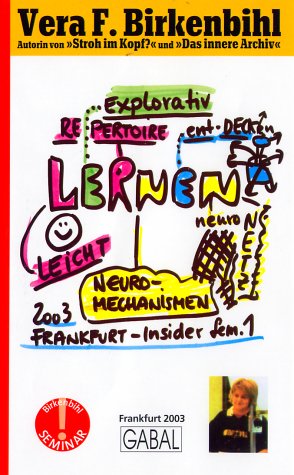 Vera F. Birkenbihl
Autorin von »Stroh im Kopf?« und »Das innere Archiv«
...explorativ
REPERTOIRE
ent-DECKEN
LERNEN
LEICHT
neuro
NETZ
NEURO-
MECHANISMEN
2003
FRANKFURT-Insider Sem. 1
Birkenbihl
!
SEMINAR
Frankfurt 2003
GABAL